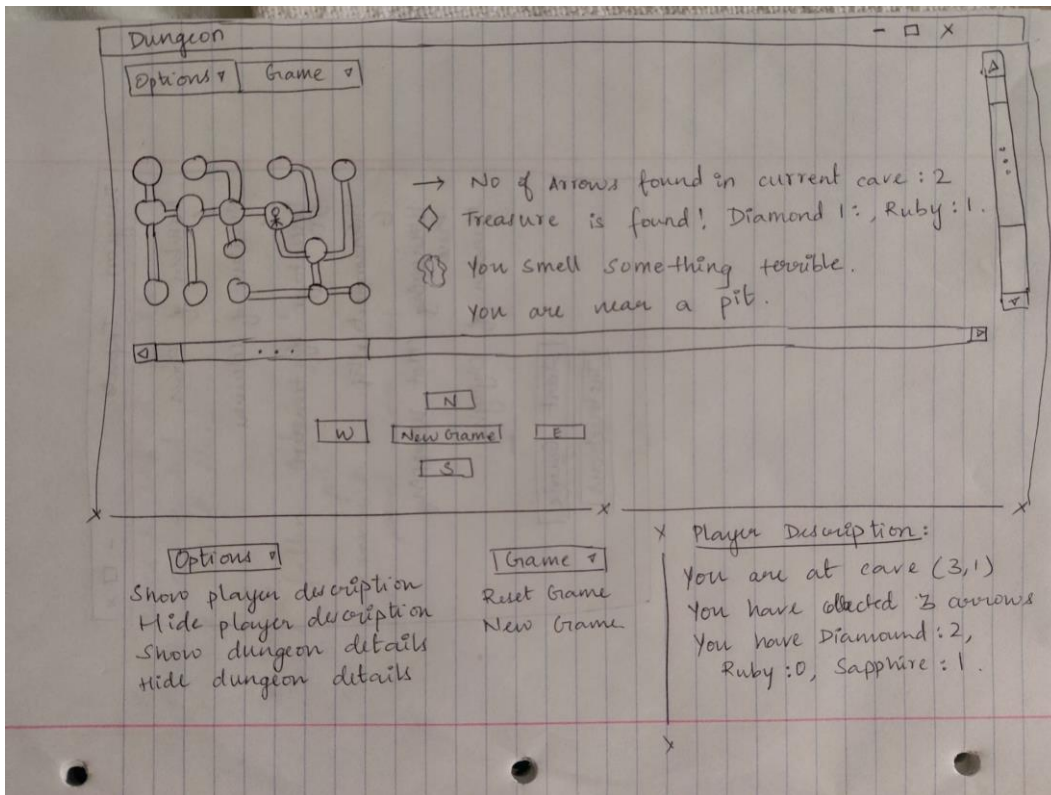 Dungeon
- □ X
Options ▿ Game ▿
→ No of Arrows found in current cave : 2
◇ Treasure is found! Diamond 1:, Ruby : 1.
You smell something terrible.
You are near a pit.
N
W New Game E
S
Options ▿
Show player description
Hide player description
Show dungeon details
Hide dungeon details
Game ▿
Reset Game
New Game
Player Description:
You are at cave (3,1)
You have collected 3 arrows
You have Diamound : 2,
Ruby : 0, Sapphire : 1.